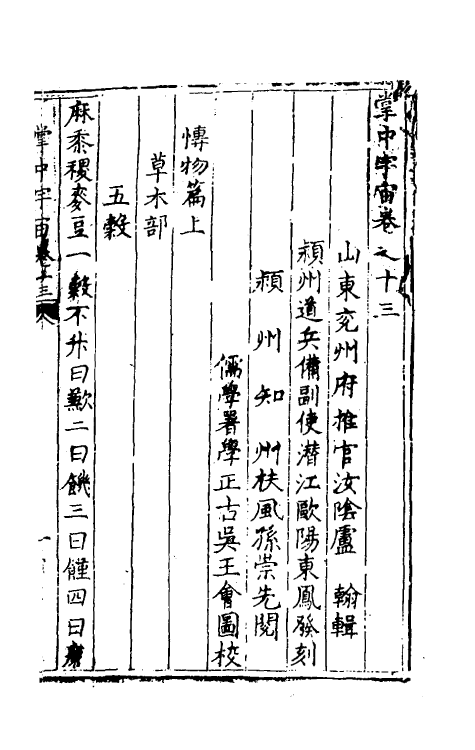 掌中宇宙卷之十三
山東兖州府推官汝陰盧翰輯
潁州道兵備副使潛江歐陽東鳳發刻
潁州知州扶風孫崇先閱
儒學署學正古吳王會圖校
博物篇上
草木部
五穀
麻黍稷麥豆一穀不升曰歉二曰饑三曰饉四曰
掌中宇宙卷十三